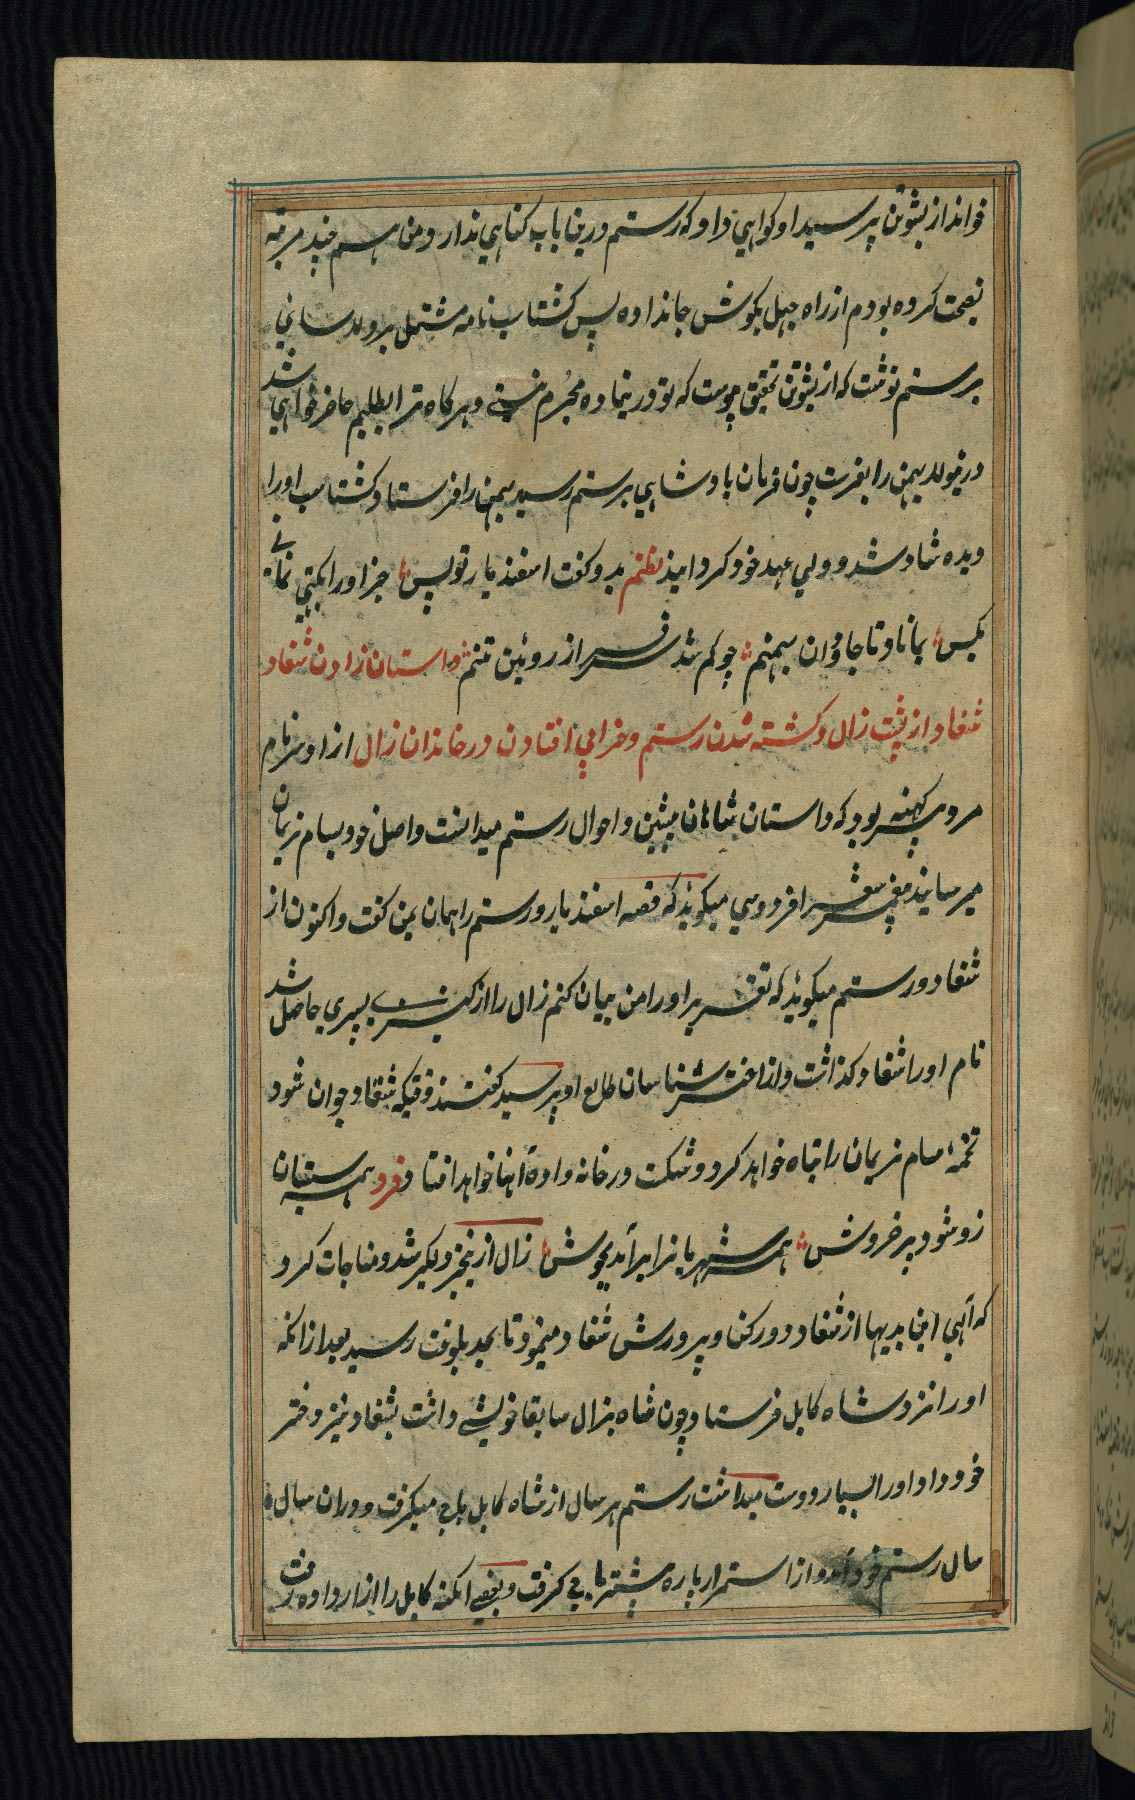 خواند از بشوتن پرسید او کواهی داد که رستم درینباب کناهی ندارد و من هم چند مرتبه
نصیحت کرده بودم از راه جهل بکوش جا نداده پس کشتاسب نامه مشتمل بر دلاسانی
برستم نوشت که از بشوتن تحقیق پیوست که تو درینماده مجرم نیستی و هرکاه ترا بطلبم حاضر خواهی شد
درینولا بهمن را بفرست چون فرمان بادشاهی برستم رسید بهمن را فرستاد کشتاسب او را
دیده شاد شد و ولی عهد خود کردانید نظم بدو کفت اسفندیار تو پس جز او را بکیتی نمانی
بکس بماناد تا جاودان بهمنم چو کم شد سرافراز روئین تنم داستان زادن شغاد
شغاد از پشت زال و کشته شدن رستم و خرابی افتادن در خاندان زال ازاد سرو نام
مردی کهنه بود که داستان شاهان پیشین و احوال رستم میدانست و اصل خود بسام نریمان
میرسانید فردوسی میکوید که قصه اسفندیار و رستم را همان بمن کفت و اکنون از
شغاد و رستم میکوید که تقریر او را من بیان کنم زال را از کنیزک پسری حاصل شد
نام او را شغاد کذاشت و از اخترشناسان طالع او پرسید کفتند وقتیکه شغاد جوان شود
تخمه سام نریمان را تباه خواهد کرد و شکست در خانواده آنها خواهد افتاد فرد همه سیستان
زو شود پر خروش همه شهر ایران برآید بجوش زال ازین خبر دلکیر شد و مناجات کرد
که آلهی این بدیها از شغاد دور کن و پرورش شغاد مینمود تا بحد بلوغت رسید بعد از انکه
او را نزد شاه کابل فرستاد چون شاه بزال سابقا خویشی داشت بشغاد نیز دختر
خود داد او را بسیار دوست میداشت رستم هر سال از شاه کابل باج میکرفت و در ان سال
مال رستم خود آمد و از استمرار پاره بیشتر باج کرفت و بعضی امکنه کابل را ازار داده رفت